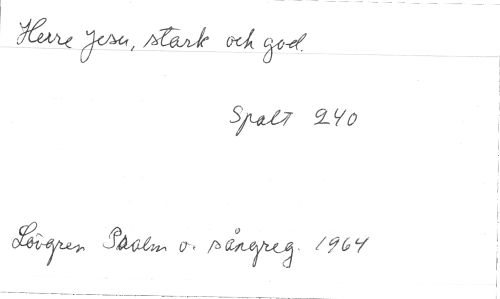 Herre Jesu, stark och god.
Spalt 240
Lövgren Psalm o. sångreg. 1964